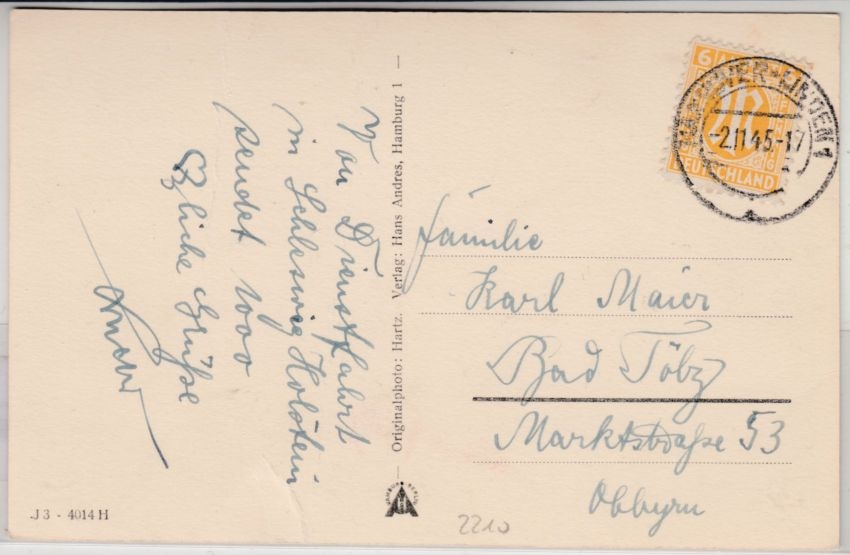 Von Dienstfahrt
in Schleswig Holstein
sendet 1000
♡zliche Grüße
Originalphoto: Hartz. Verlag: Hans Andres, Hamburg 1
6
DEUTSCHLAND
HANNOVER-LINDEN 1
-2.11.45-17
Familie
Karl Maier
Bad Tölz
Marktstraße 53
Obbyrn
J 3 - 4014 H
2210